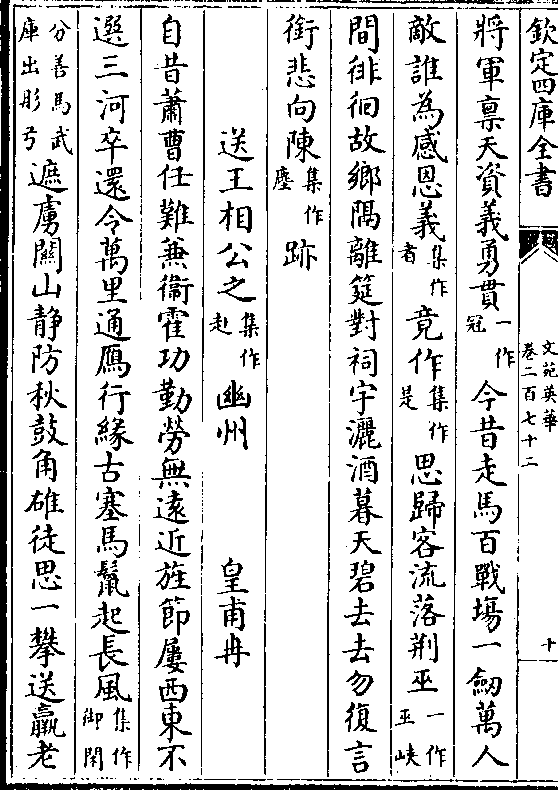 欽定四庫全書
文苑英華
卷二百七十二
十
將軍禀天資義勇貫一作冠今昔走馬百戰塲一劒萬人
敵誰為感恩義集作者竟作集作是思歸客流落荆巫一作巫峽
間徘徊故鄉隅離筵對祠宇灑酒暮天碧去去勿復言
銜悲向陳集作塵跡
送王相公之集作赴幽州　皇甫冉
自昔蕭曹任難兼衞霍功勤勞無遠近旌節屢西東不
選三河卒還令萬里通鴈行緣古塞馬鬛起長風集作御閑
分善馬武庫出彤弓遮虜關山静防秋鼓角雄徒思一攀送羸老